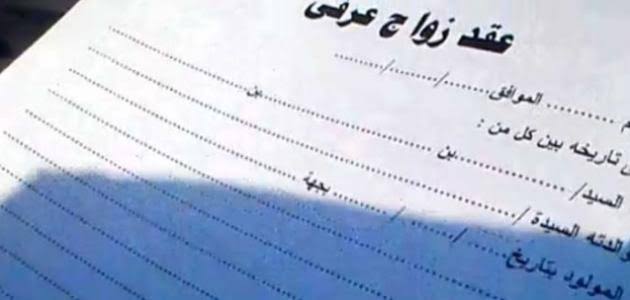 عقد زواج عرفى
م .......... الموافق......./......../........
تاريخه بين كل من :
السيد/ ....................بن ..............................بن..............................
والدته السيدة /..............................
المولود بتاريخ....../......./.......... بجهة ..............................